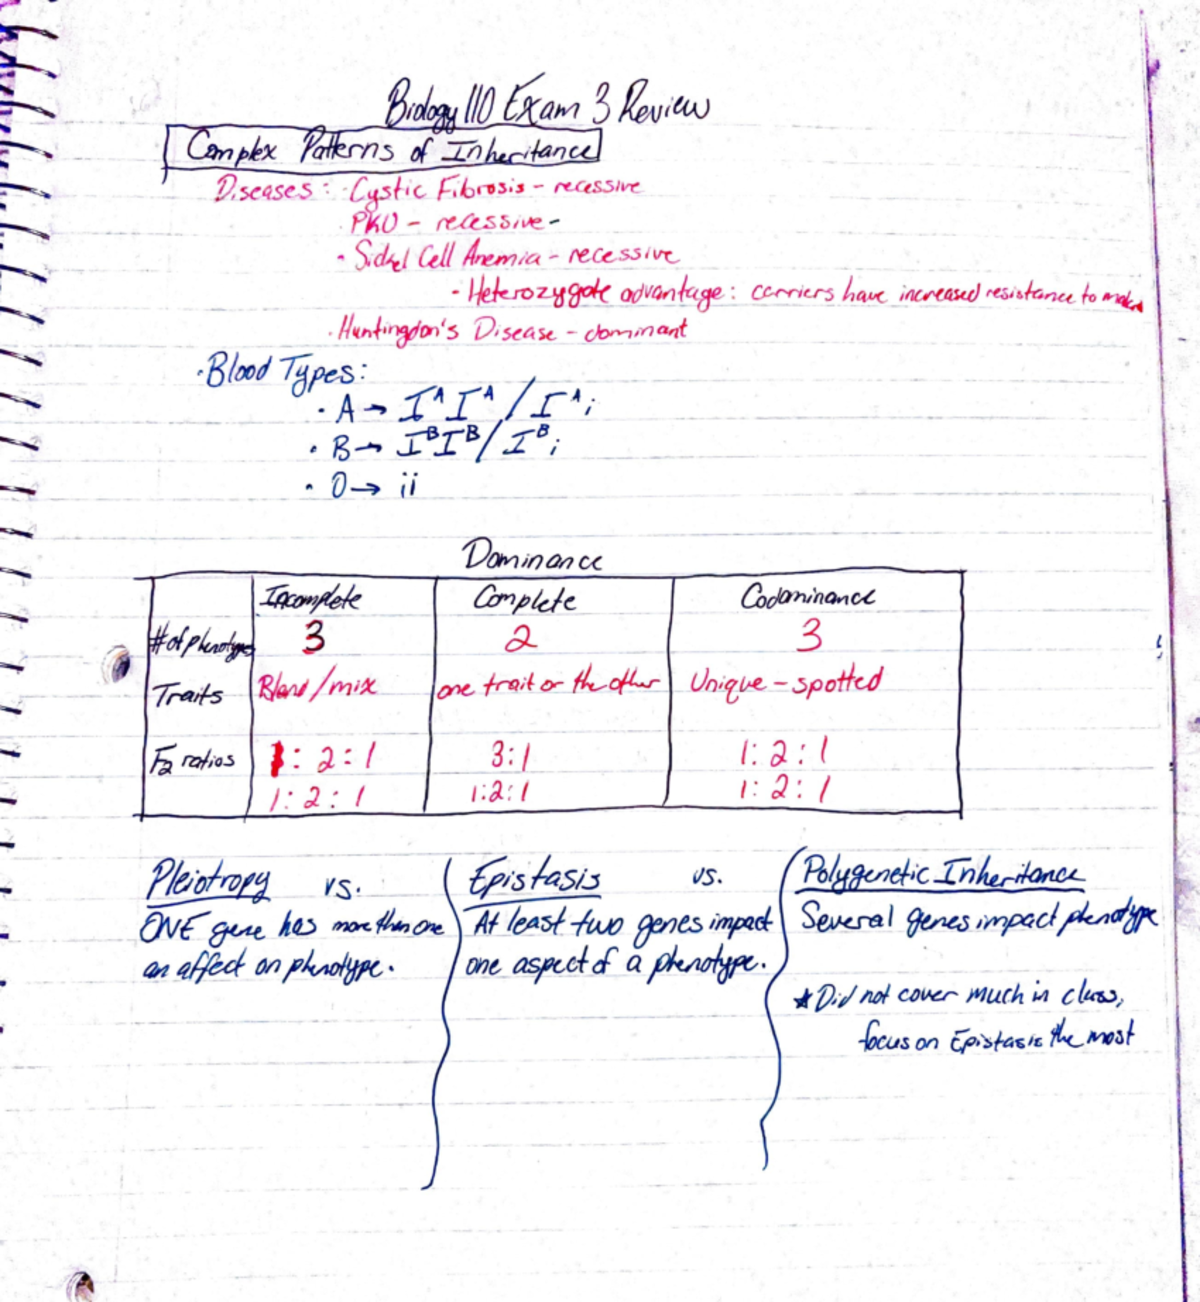 Biology 110 Exam 3 Review
Complex Patterns of Inheritance
Diseases: · Cystic Fibrosis - recessive
PKU - recessive -
· Sickel Cell Anemia - recessive
- Heterozygote advantage: carriers have increased resistance to
· Huntingdon's Disease - dominant
· Blood Types:
· A → I^A I^A / I^A i
· B → I^B I^B / I^B i
· O → ii
Dominance
Incomplete Complete Codominance
# of phenotypes 3 2 3
Traits Blend/mix one trait or the other Unique - spotted
F2 ratios 1:2:1 3:1 1:2:1
1:2:1 1:2:1 1:2:1
Pleiotropy vs. Epistasis vs. Polygenetic Inheritance
ONE gene has more than one At least two genes impact Several genes impact phenotype
an affect on phenotype. one aspect of a phenotype.
* Did not cover much in class,
focus on Epistasis the most